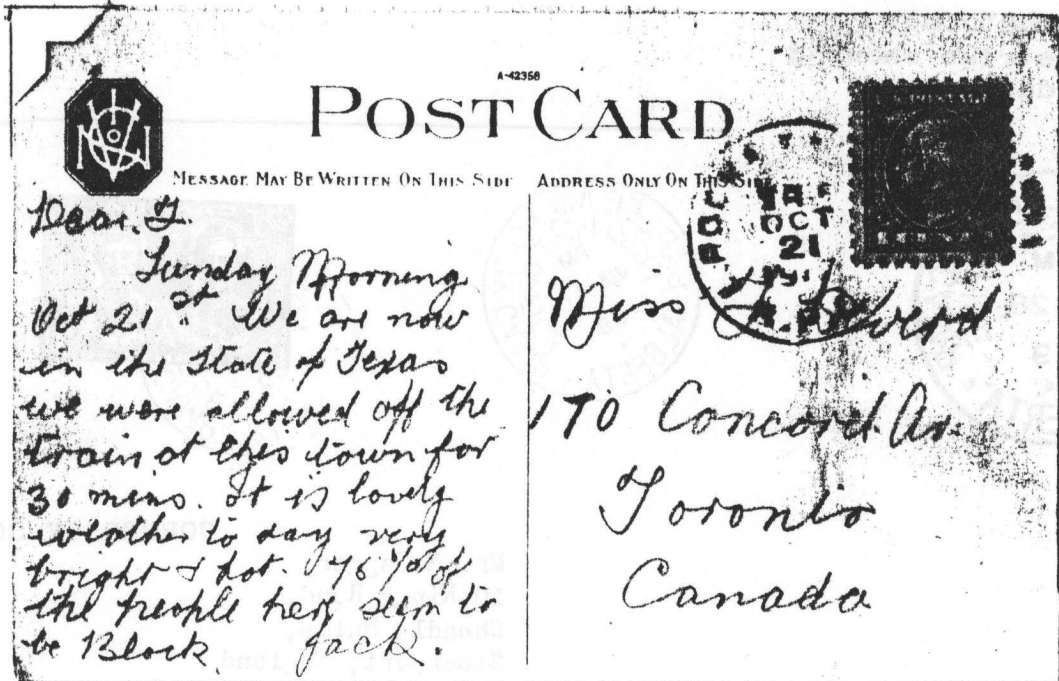 A-42358
POST CARD
MESSAGE MAY BE WRITTEN ON THIS SIDE
ADDRESS ONLY ON THIS SIDE
Dear. F.
Sunday Morning
Oct 21st. We are now
in the State of Texas
we were allowed off the
train at this town for
30 mins. It is lovely
weather to day very
bright & hot. 75% of
the people here seem to
be Black. Jack.
OCT
21
Miss
170 Concord Av.
Toronto
Canada